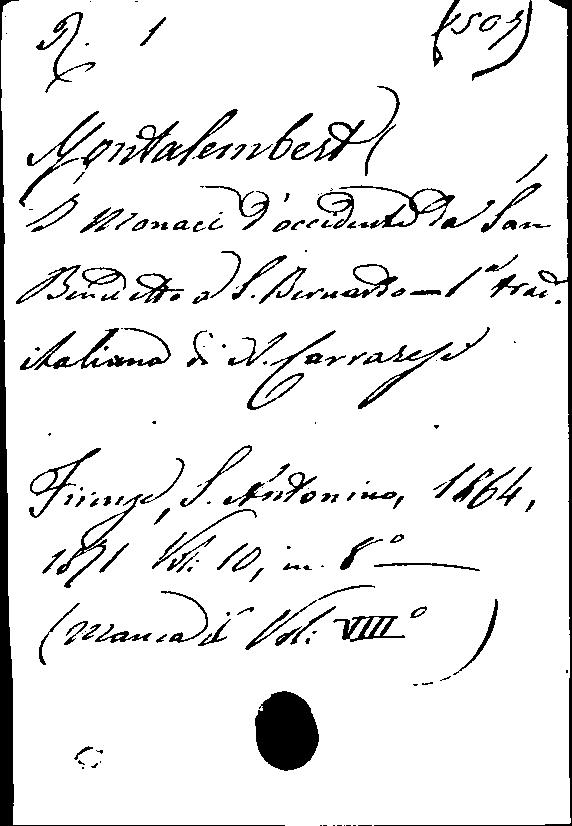 R. 1 (1505)
Montalembert
I Monaci d'occidente da San
Benedetto a S. Bernardo – 1ª trad.
italiana di A. Carraresi
Firenze, S. Antonino, 1864,
1871 Vol: 10, in 8°
(Manca il Vol: VIII°)